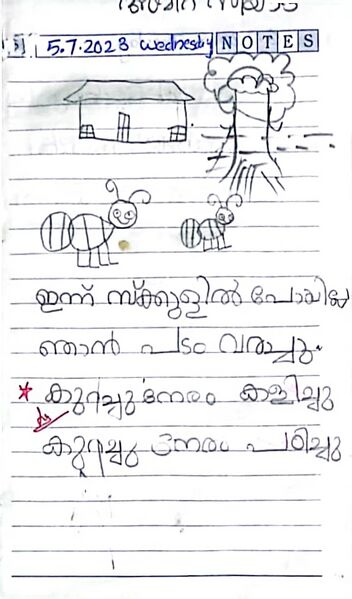 5.7.2023 wednesby NOTES
ഇന്ന് സ്ക്കൂളിൽ പോയില്ല
ഞാൻ പടം വരച്ചു.
കുറച്ചു നേരം കളിച്ചു
കുറച്ചു നേരം പഠിച്ചു